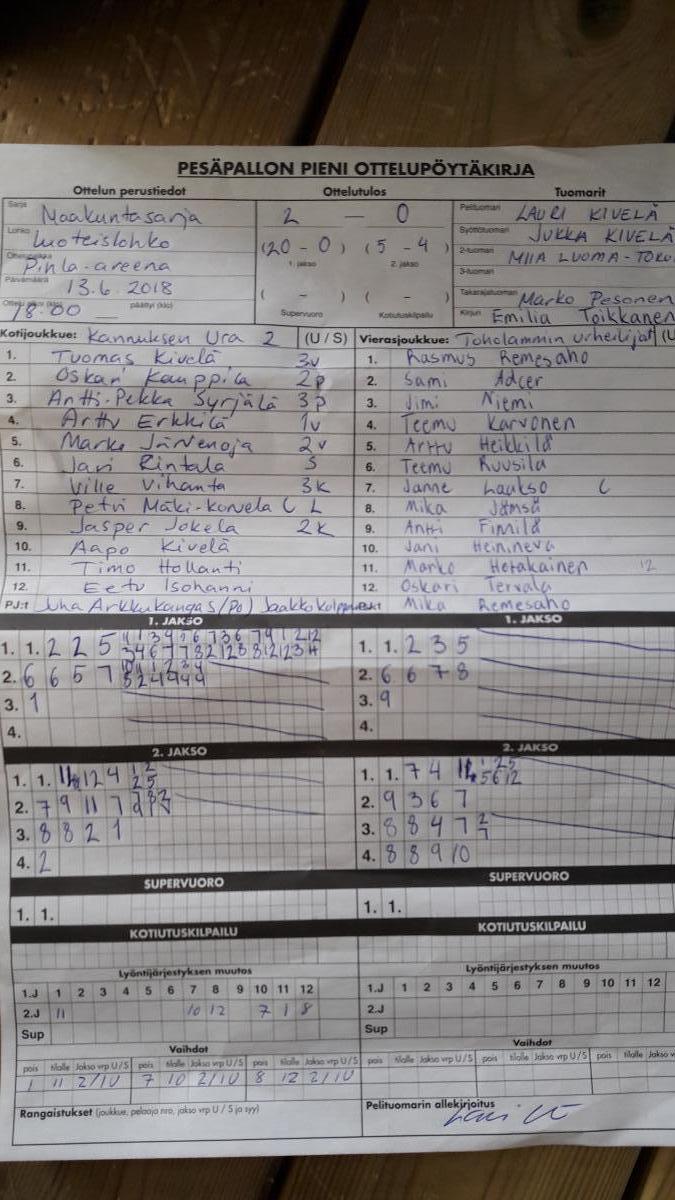 PESÄPALLON PIENI OTTELUPÖYTÄKIRJA
Ottelun perustiedot Ottelutulos Tuomarit
Sarja Maakuntasarja 2 — 0 Pelituomari LAURI KIVELÄ
Lohko Luoteislohko (20 - 0) (5 - 4) Syöttötuomari JUKKA KIVELÄ
Pihla-areena 1. jakso 2. jakso 2-tuomari MIIA LUOMA-TOKO
Päivämäärä 13.6.2018 3-tuomari
( - ) ( - ) Takarajatuomari Marko Pesonen
18.00 päättyi (klo) Supervuoro Kotiutuskilpailu Kirjuri Emilia Toikkanen
Kotijoukkue: Kannuksen Ura 2 (U / S) Vierasjoukkue: Toholammin Urheilijat (U
1. Tuomas Kivelä 3v 1. Rasmus Remesaho
2. Oskari Kauppila 2p 2. Sami Adcer
3. Antti-Pekka Syrjälä 3p 3. Jimi Niemi
4. Arttu Erkkilä 1v 4. Teemu Karvonen
5. Marko Järvenoja 2v 5. Arttu Heikkilä
6. Jari Rintala S 6. Teemu Ruusila
7. Ville Vihanta 3K 7. Janne Laakso C
8. Petri Mäki-Korvela C L 8. Mika Jämsä
9. Jasper Jokela 2K 9. Antti Finnilä
10. Aapo Kivelä 10. Jani Heinineva
11. Timo Hollanti 11. Marko Hotakainen 12
12. Eetu Isohanni 12. Oskari Tervala
PJ:t Juha Arkkukangas (PO) Jaakko PJ:t Mika Remesaho
1. JAKSO 1. JAKSO
1. 1. 2 2 5 1. 1. 2 3 5
2. 6 6 5 7 2. 6 6 7 8
3. 1 3. 9
4. 4.
2. JAKSO 2. JAKSO
1. 1. 12 4 1. 1. 7 4
2. 7 9 11 7 2. 9 3 6 7
3. 8 8 2 1 3. 8 8 4 7
4. 2 4. 8 8 9 10
SUPERVUORO SUPERVUORO
1. 1. 1. 1.
KOTIUTUSKILPAILU KOTIUTUSKILPAILU
Lyöntijärjestyksen muutos Lyöntijärjestyksen muutos
1.J 1 2 3 4 5 6 7 8 9 10 11 12 1.J 1 2 3 4 5 6 7 8 9 10 11 12
2.J 11 10 12 7 1 8 2.J
Sup Sup
Vaihdot Vaihdot
pois tilalle Jakso vrp U / S pois tilalle Jakso vrp U / S pois tilalle Jakso vrp U / S pois tilalle Jakso vrp U / S pois tilalle Jakso vrp U / S pois tilalle Jakso v
1 11 2/1U 7 10 2/1U 8 12 2/1U
Rangaistukset (joukkue, pelaaja nro, jakso vrp U / S ja syy) Pelituomarin allekirjoitus